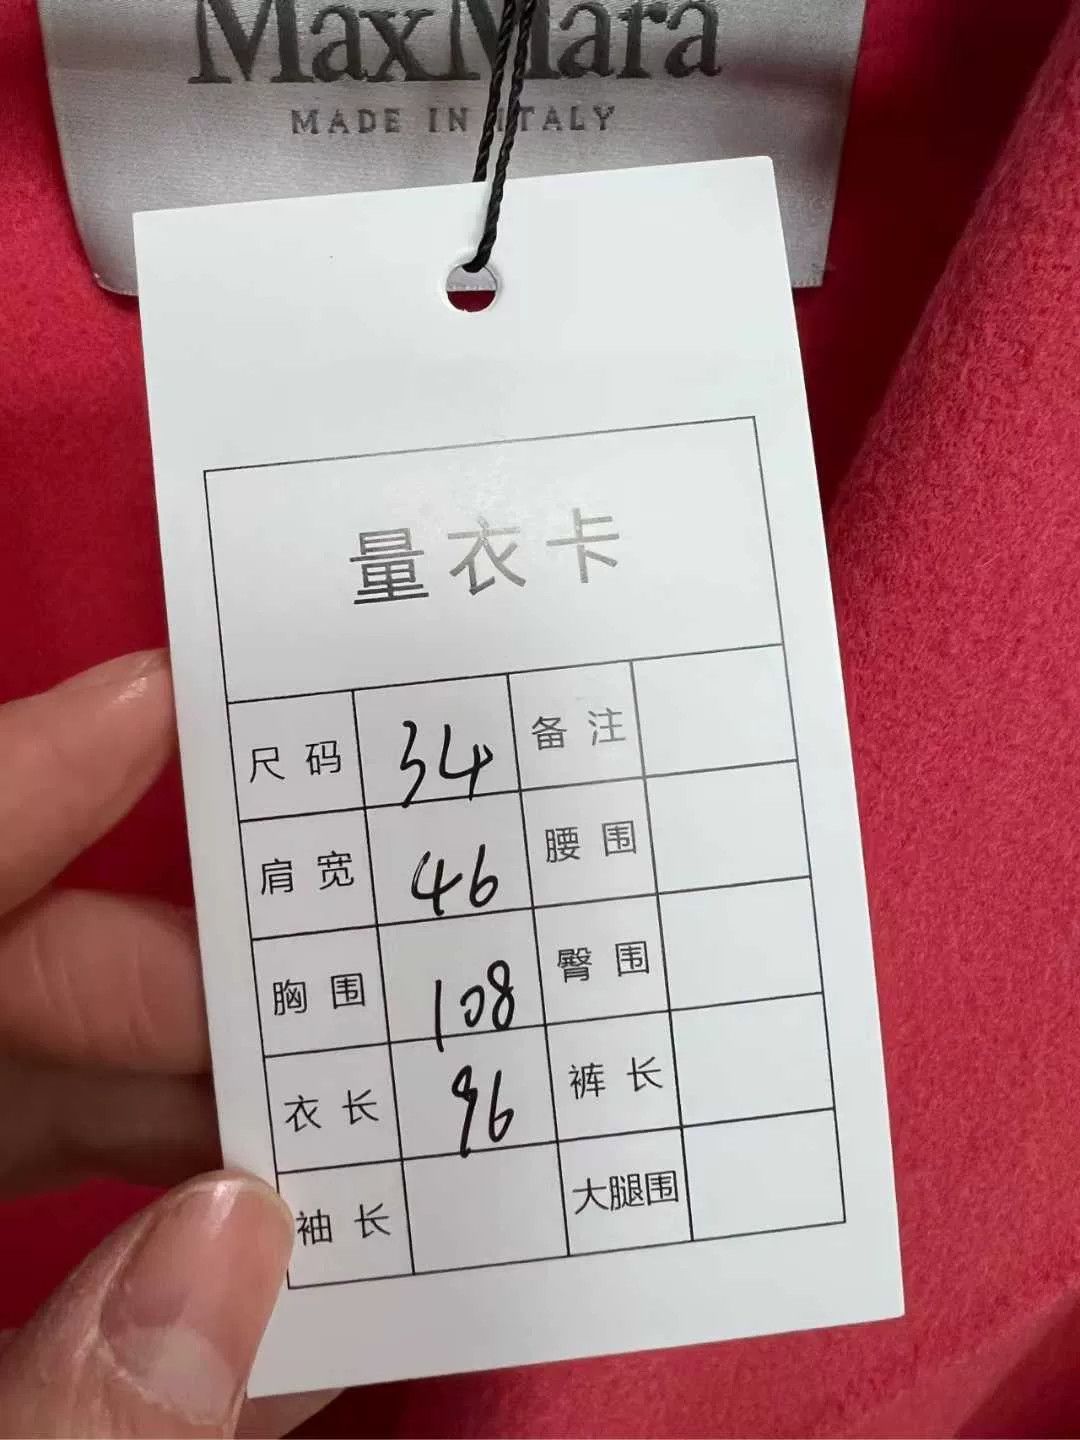 MaxMara
MADE IN ITALY
量衣卡
尺码 34 备注
肩宽 46 腰围
胸围 108 臀围
衣长 96 裤长
袖长 大腿围